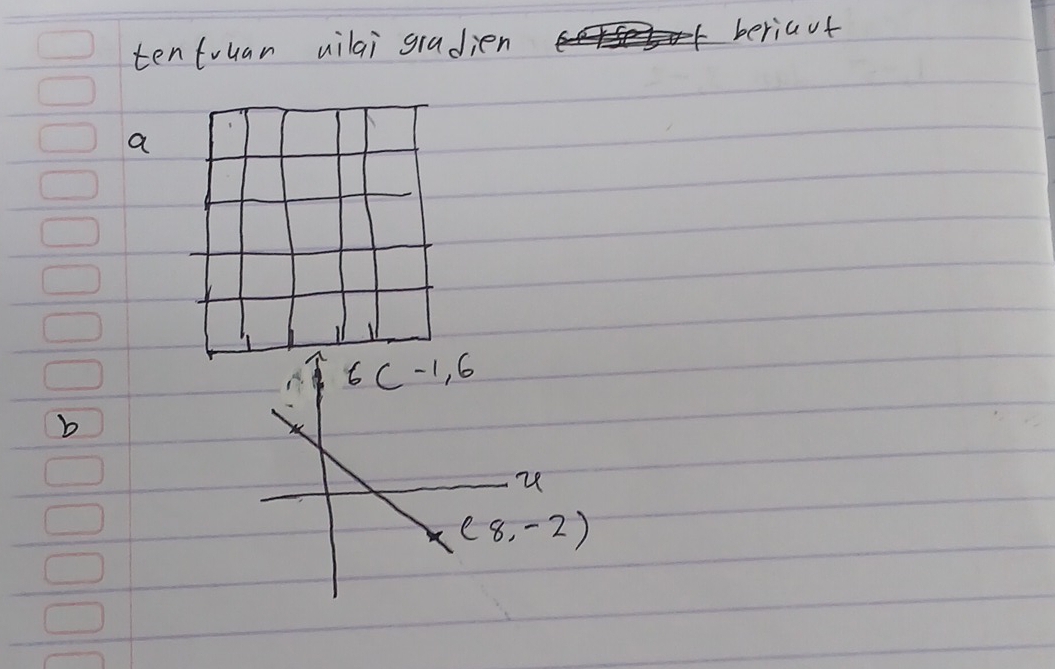 tentukan nilai gradien berikut
a
6 (-1,6
b
x
(8,-2)